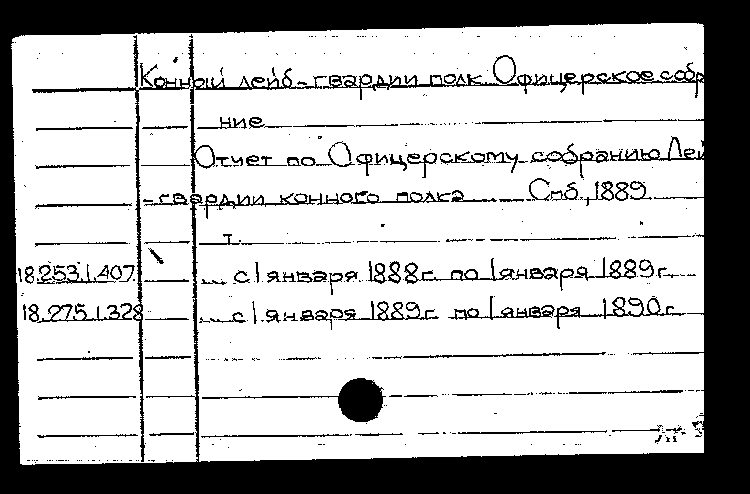 Конный лейб-гвардии полк. Офицерское собр
ние
Отчет по Офицерскому собранию Лей
-гвардии конного полка ... Спб., 1889
т.
18.253.1.407 ... с 1 января 1888 г. по 1 января 1889 г.
18.275.1.328 ... с 1 января 1889 г. по 1 января 1890 г.